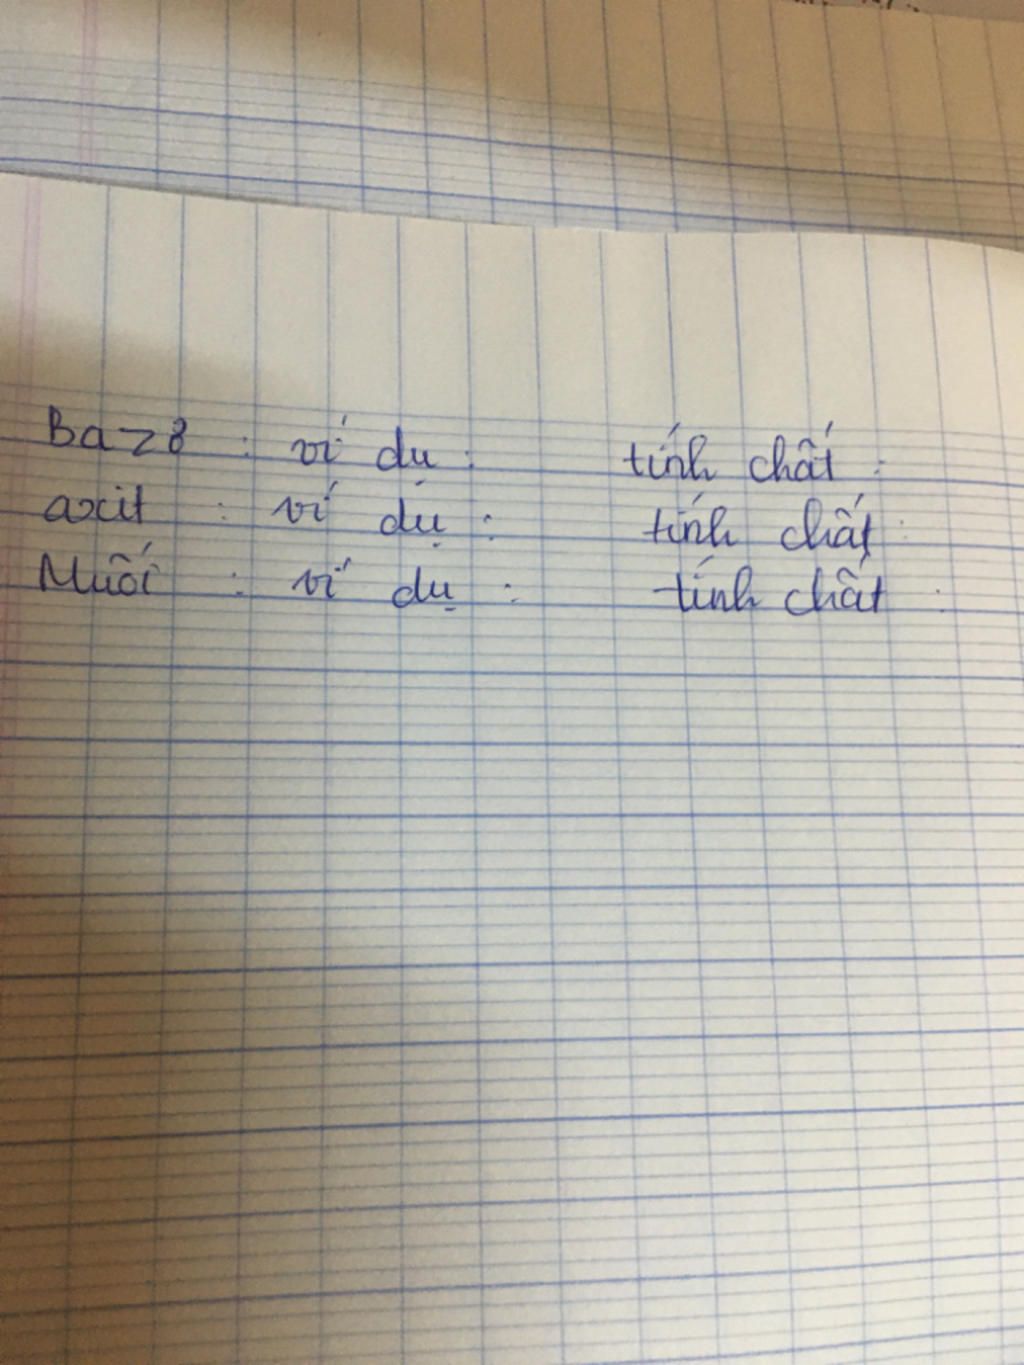 Bazơ : ví dụ : tính chất :
axit : ví dụ : tính chất :
Muối : ví dụ : tính chất :